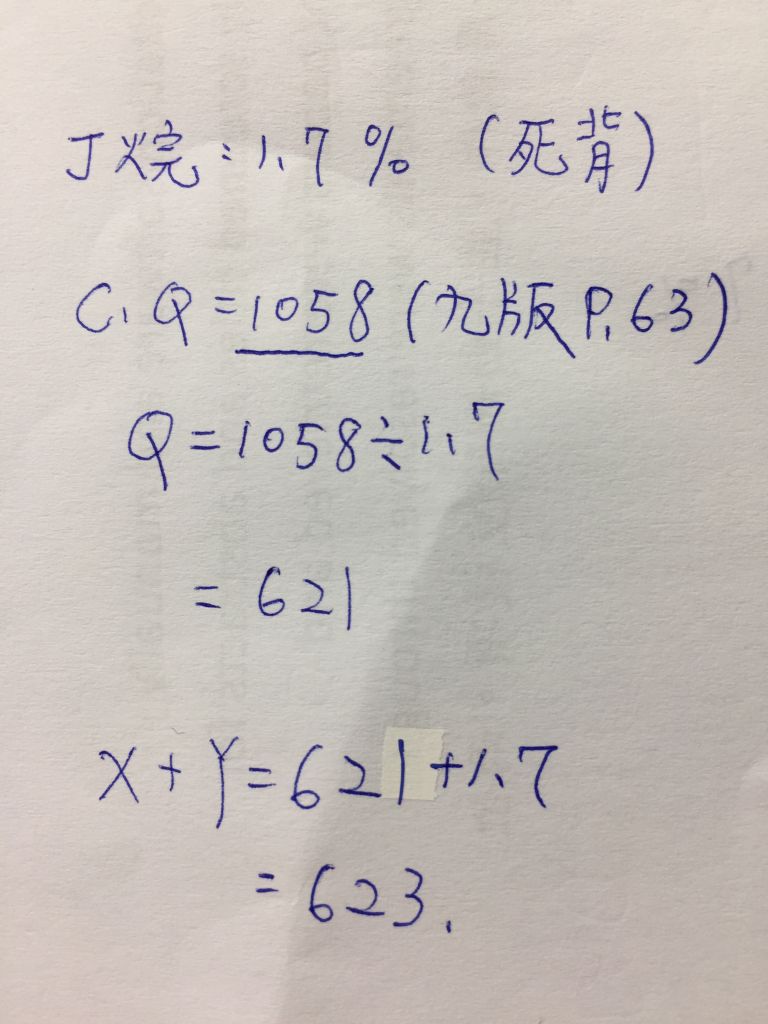 丁烷:1.7% (死背)
C.Q=1058(九版P.63)
Q=1058÷1.7
=621
X+Y=621+1.7
=623.